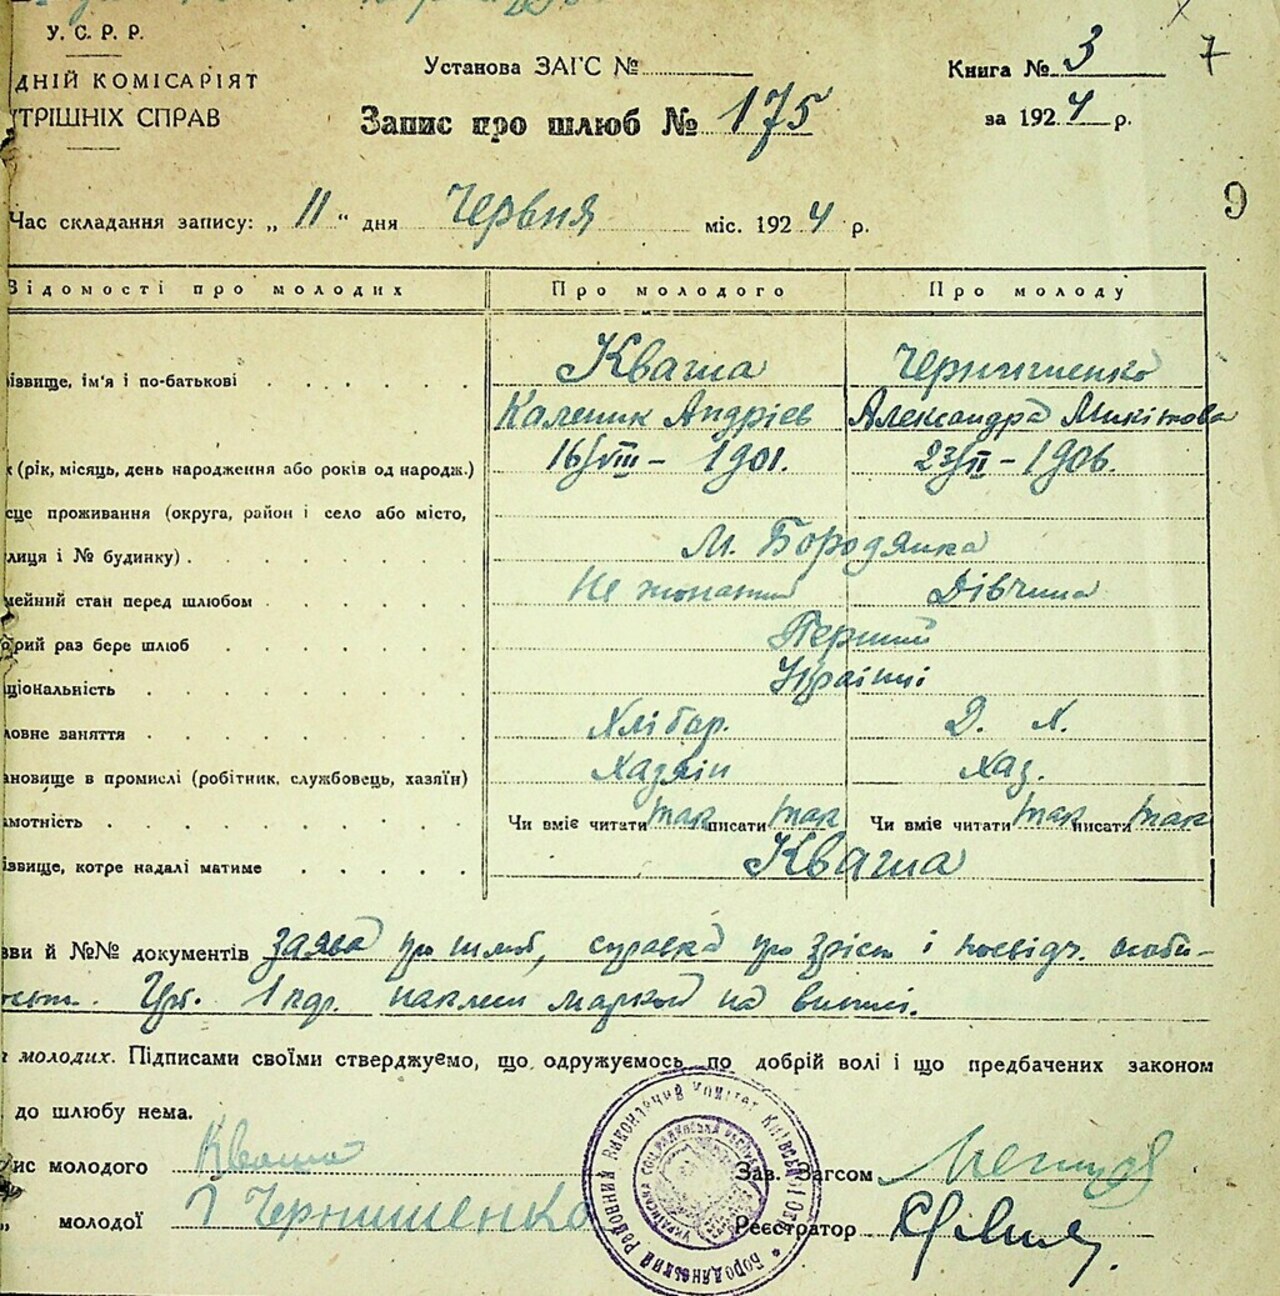 У. С. Р. Р.
ДНІЙ КОМІСАРІЯТ
ТРІШНІХ СПРАВ
Установа ЗАГС №
Запис про шлюб № 175
Книга № 3
7
за 1924 р.
9
Час складання запису: „ 11 “ дня Червня міс. 1924 р.
Відомості про молодих Про молодого Про молоду
ізвище, ім'я і по-батькові Кваша Чернишенко
Каленик Андріев Александра Микітова
(рік, місяць, день народження або років од народж.) 16/VIII - 1901. 23/II - 1906.
сце проживання (округа, район і село або місто,
лиця і № будинку) М. Бородянка
мейний стан перед шлюбом Не жонатий Дівчина
рий раз бере шлюб Перший
ціональність Украінці
ловне заняття Хлібор. Д. Х.
ановище в промислі (робітник, службовець, хазяїн) Хазяін Хаз.
мотність Чи вміє читати так писати так Чи вміє читати так писати так
ізвище, котре надалі матиме Кваша
зви й №№ документів заява про шлюб, справка про зріст і посвідч. особи-
1 кдр. наклеен маркой на
молодих. Підписами своїми стверджуємо, що одружуємось по добрій волі і що предбачених законом
до шлюбу нема.
ис молодого Кваша
„ молодої Чернишенко
Зав. Загсом
Реєстратор
Бородянський Районний Виконавчий Комітет Київської